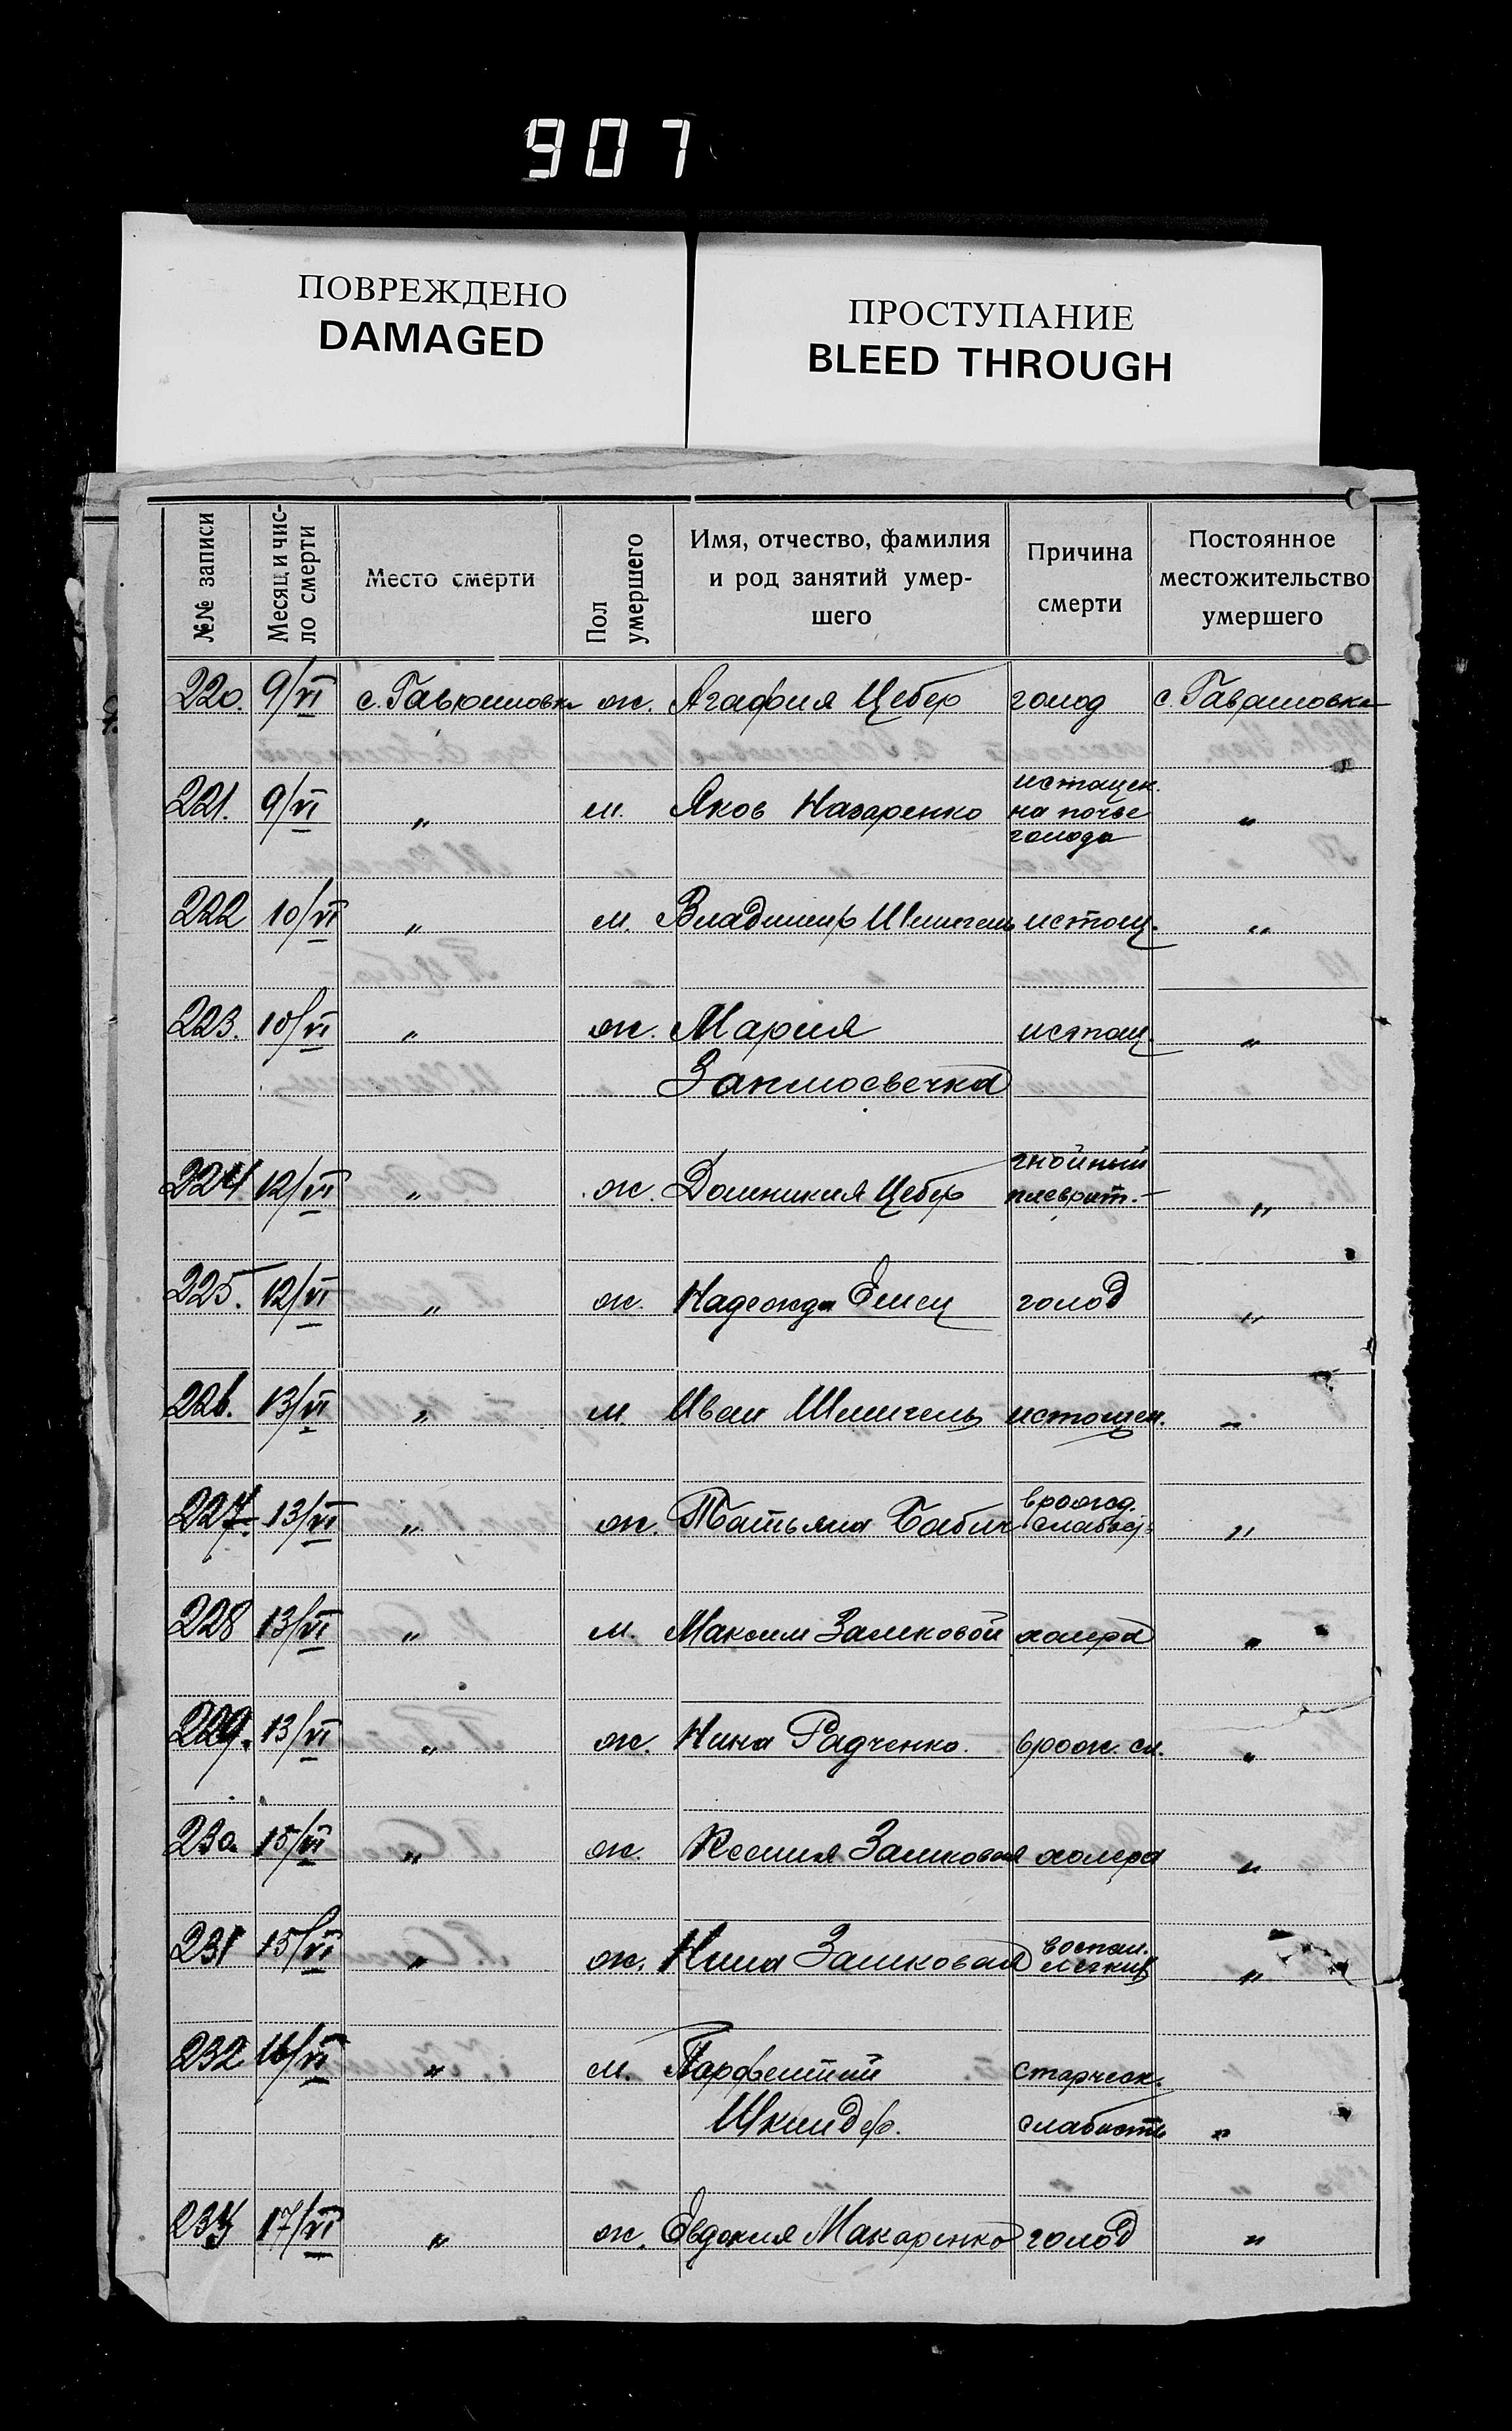 907
ПОВРЕЖДЕНО
DAMAGED
ПРОСТУПАНИЕ
BLEED THROUGH
№№ записи
Месяц и чис-
ло смерти
Место смерти
Пол
умершего
Имя, отчество, фамилия
и род занятий умер-
шего
Причина
смерти
Постоянное
местожительство
умершего
220. 9/VI с. Гавриловка ж. Агафия Цебер голод с. Гавриловка
221. 9/VI „ м. Яков Назаренко истощен.
на почве
голода „
222 10/VI „ м. Владимир Шмигель истощ. „
223. 10/VI „ ж. Мария истощ. „
224 12/VI „ ж. Домникия Цебер гнойный
плеврит. „
225. 12/VI „ ж. Надежда Емец голод „
226. 13/VI „ м. Иван Шмигель истощен. „
227. 13/VI „ ж. Татьяна Бабич врожд.
слабость „
228 13/VI „ м. Максим Замковой холера „
229. 13/VI „ ж. Нина Радченко. врож. сл. „
230. 15/VI „ ж. Ксения Замковая холера „
231 15/VI „ ж. Нина Замковая воспал.
легких „
232 16/VI „ м. Парфентий старческ.
Шкиндер. слабость „
233 17/VI „ ж. Евдокия Макаренко голод „